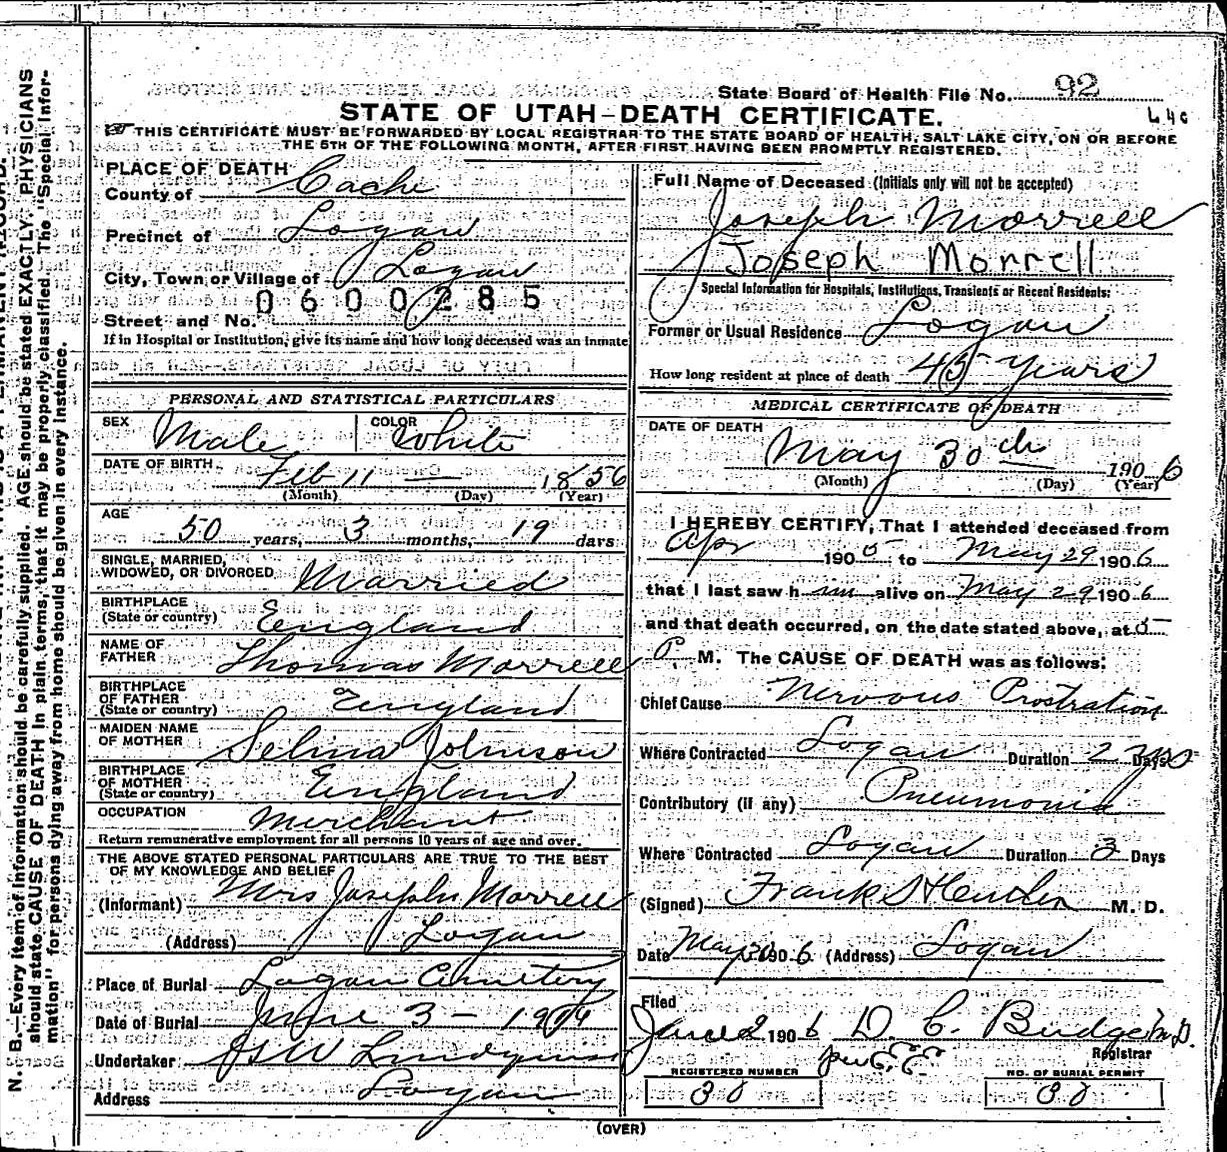 State Board of Health File No. 92
STATE OF UTAH-DEATH CERTIFICATE.
THIS CERTIFICATE MUST BE FORWARDED BY LOCAL REGISTRAR TO THE STATE BOARD OF HEALTH, SALT LAKE CITY, ON OR BEFORE
THE 5TH OF THE FOLLOWING MONTH, AFTER FIRST HAVING BEEN PROMPTLY REGISTERED.
PLACE OF DEATH
County of Cache
Precinct of Logan
City, Town or Village of Logan
0600285
Street and No.
If in Hospital or Institution, give its name and how long deceased was an inmate
PERSONAL AND STATISTICAL PARTICULARS
SEX Male COLOR White
DATE OF BIRTH Feb 11 — 1856
(Month) (Day) (Year)
AGE
50 years, 3 months, 19 days
SINGLE, MARRIED,
WIDOWED, OR DIVORCED Married
BIRTHPLACE
(State or country) England
NAME OF
FATHER Thomas Morrell
BIRTHPLACE
OF FATHER
(State or country) England
MAIDEN NAME
OF MOTHER Selina Johnson
BIRTHPLACE
OF MOTHER
(State or country) England
OCCUPATION Merchant
Return remunerative employment for all persons 10 years of age and over.
THE ABOVE STATED PERSONAL PARTICULARS ARE TRUE TO THE BEST
OF MY KNOWLEDGE AND BELIEF
(Informant) Mrs Joseph Morrell
(Address) Logan
Place of Burial Logan Cemetery
Date of Burial June 3 - 190
Undertaker
Address Logan
Full Name of Deceased (Initials only will not be accepted)
Joseph Morrell
Joseph Morrell
Special Information for Hospitals, Institutions, Transients or Recent Residents:
Former or Usual Residence Logan
How long resident at place of death 45 years
MEDICAL CERTIFICATE OF DEATH
DATE OF DEATH
May 30th 1906
(Month) (Day) (Year)
I HEREBY CERTIFY, That I attended deceased from
Apr 1905 to May 29 1906
that I last saw him alive on May 29 1906
and that death occurred, on the date stated above, at 5
P. M. The CAUSE OF DEATH was as follows:
Chief Cause Nervous Prostration
Where Contracted Logan Duration 2 Days
Contributory (if any) Pneumonia
Where Contracted Logan Duration 3 Days
(Signed) Frank S M. D.
Date May 1906 (Address) Logan
Filed
June 2 1906 D. C. Budge M.D.
per E.E. Registrar
REGISTERED NUMBER
30
NO. OF BURIAL PERMIT
30
(OVER)
N. B.—Every item of information should be carefully supplied. AGE should be stated EXACTLY. PHYSICIANS
should state CAUSE OF DEATH in plain terms, that it may be properly classified. The "Special Infor-
mation" for persons dying away from home should be given in every instance.